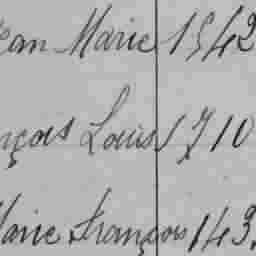 ean Marie 1542
nçois Louis 1710
Marie François 143